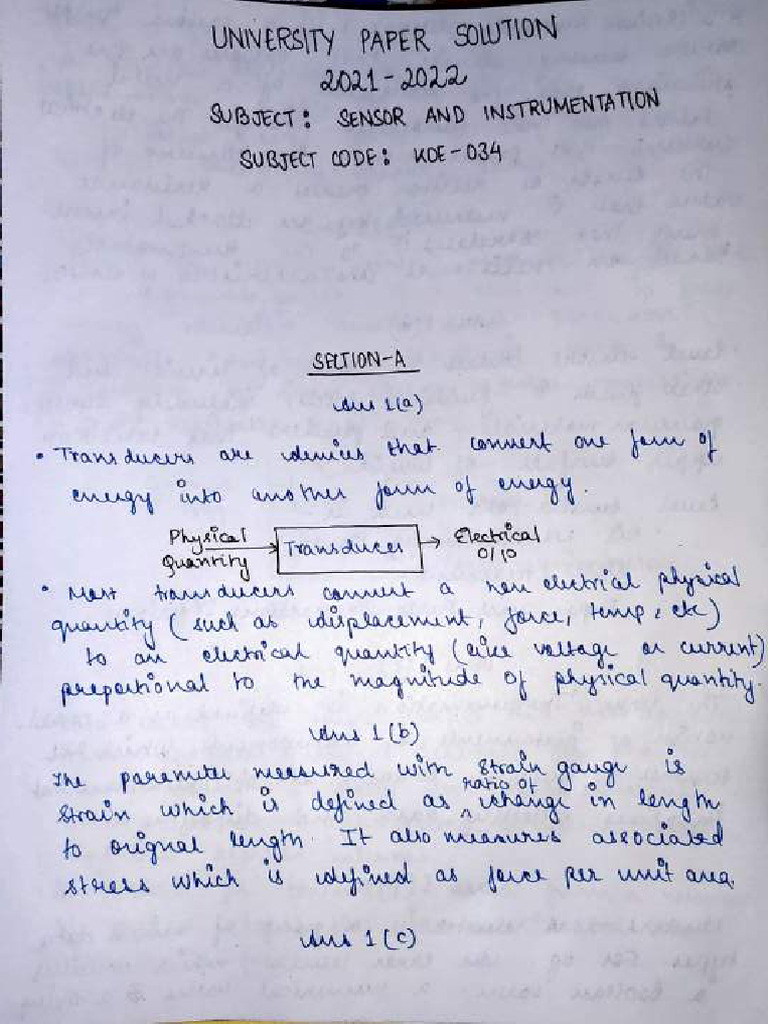 UNIVERSITY PAPER SOLUTION
2021-2022
SUBJECT: SENSOR AND INSTRUMENTATION
SUBJECT CODE: KOE-034
SECTION-A
Ans 1(a)
• Transducers are devices that convert one form of
energy into another form of energy.
Physical Quantity
Transducer
Electrical O/P
• Most transducers convert a non electrical physical
quantity (such as displacement, force, temp, etc)
to an electrical quantity (like voltage or current)
proportional to the magnitude of physical quantity.
Ans 1(b)
The parameter measured with strain gauge is
strain which is defined as ratio of change in length
to orignal length. It also measures associated
stress which is defined as force per unit area.
Ans 1(c)